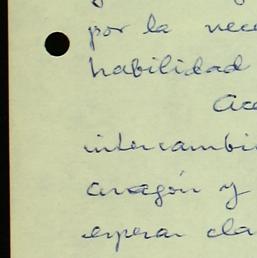 por la nece
habilidad
Ace
intercambi
aragón y
esperar cla